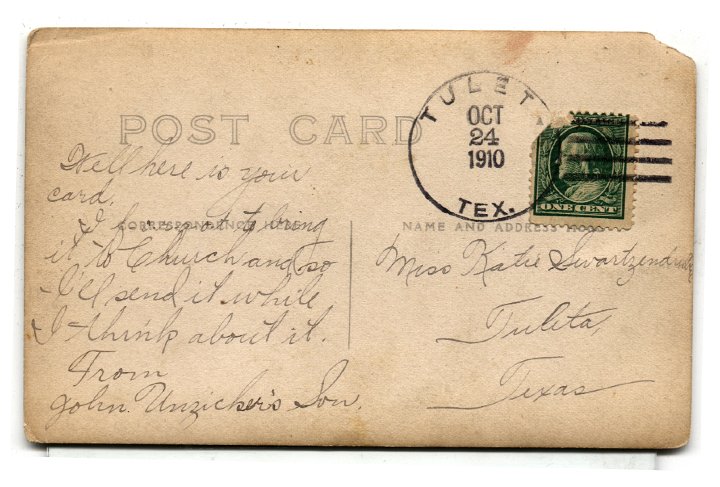 POST CARD
TULET
OCT
24
1910
TEX.
ONE CENT
Well here is your
card.
CORRESPONDENCE HERE
I forgot to bring
it to Church and so
I'll send it while
I think about it.
From
John Unzicker's Son.
NAME AND ADDRESS HERE
Miss Katie Swartzendruber
Tuleta,
Texas